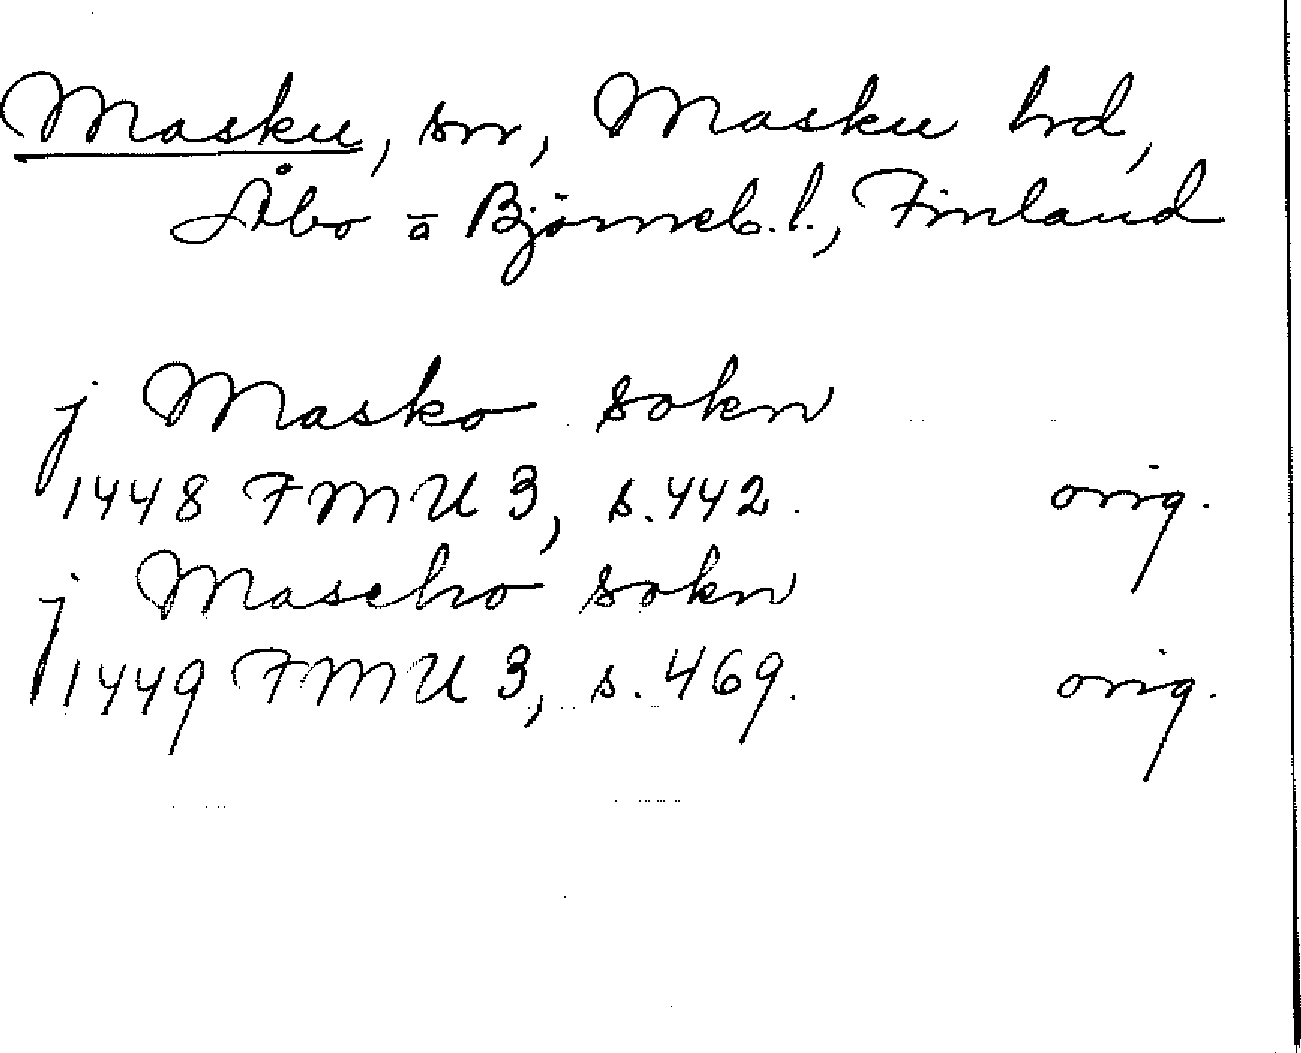 Masku, sn, Masku hd,
Åbo o Björneb. l., Finland
j Masko sokn
1448 FMU 3, s. 442. orig.
j Mascho sokn
1449 FMU 3, s. 469. orig.